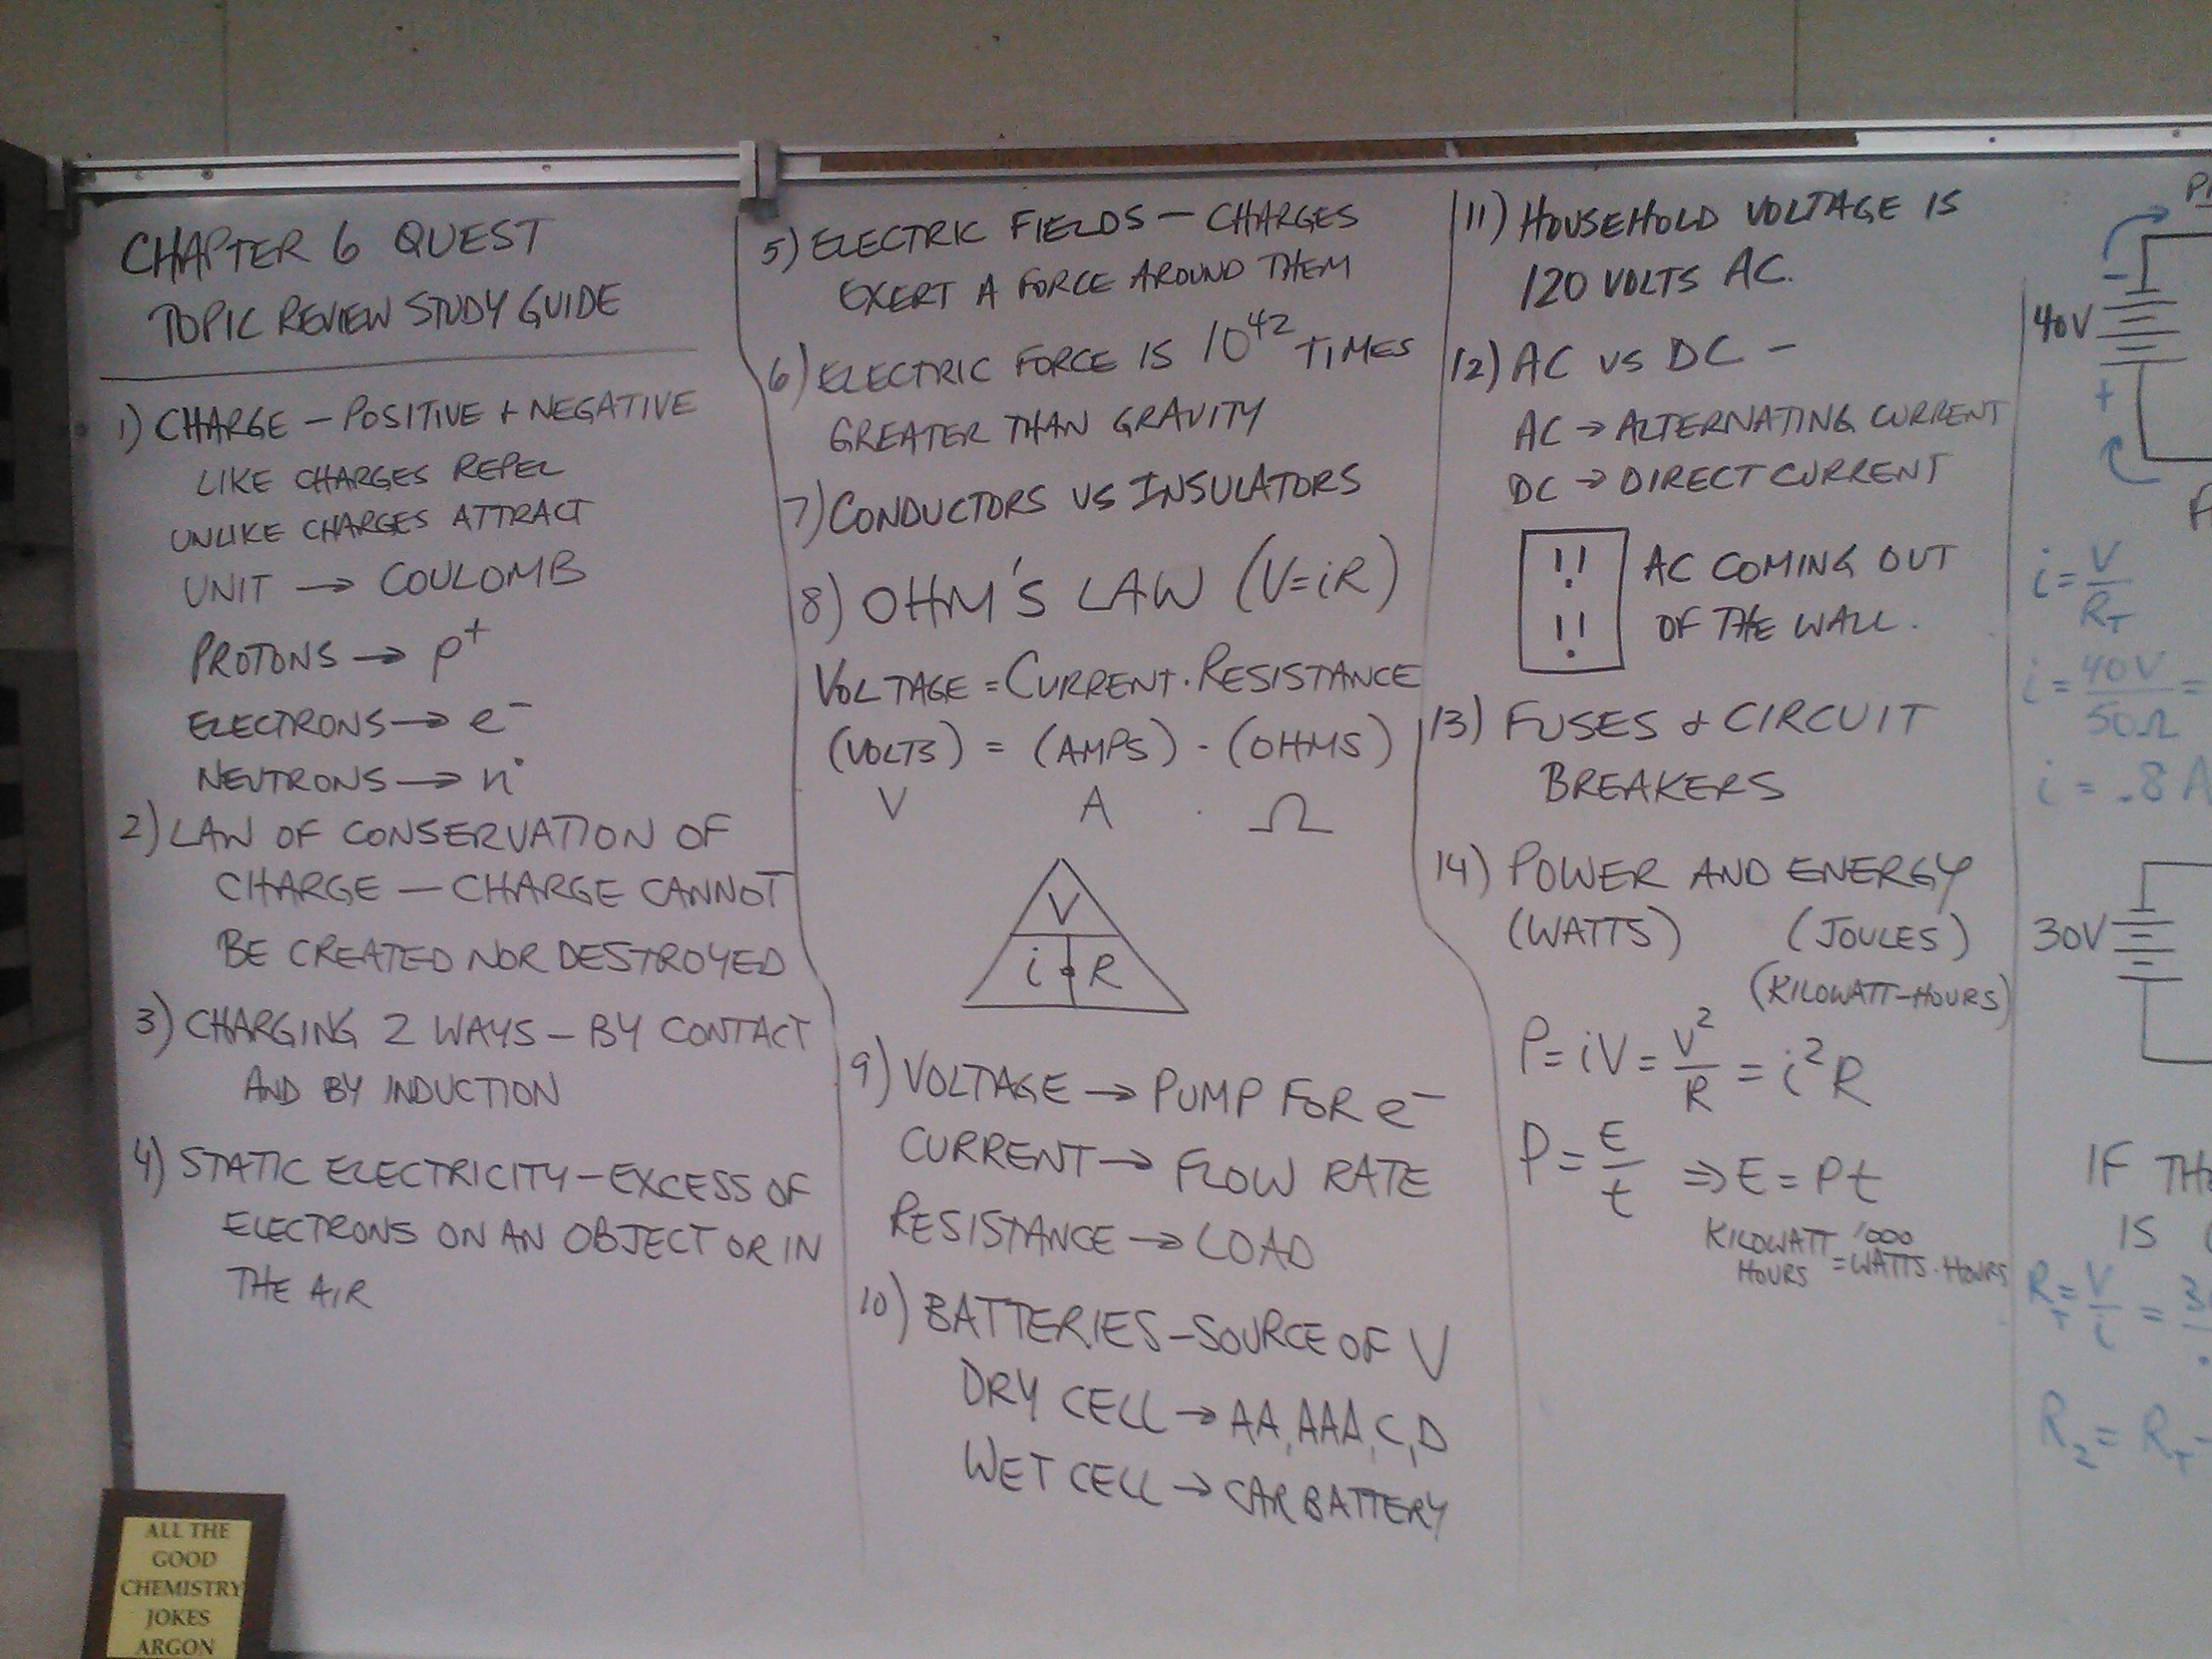 CHAPTER 6 QUEST
TOPIC REVIEW STUDY GUIDE
1) CHARGE – POSITIVE + NEGATIVE
LIKE CHARGES REPEL
UNLIKE CHARGES ATTRACT
UNIT → COULOMB
PROTONS → p⁺
ELECTRONS → e⁻
NEUTRONS → n°
2) LAW OF CONSERVATION OF
CHARGE – CHARGE CANNOT
BE CREATED NOR DESTROYED
3) CHARGING 2 WAYS – BY CONTACT
AND BY INDUCTION
4) STATIC ELECTRICITY – EXCESS OF
ELECTRONS ON AN OBJECT OR IN
THE AIR
5) ELECTRIC FIELDS – CHARGES
EXERT A FORCE AROUND THEM
6) ELECTRIC FORCE IS 10⁴² TIMES
GREATER THAN GRAVITY
7) CONDUCTORS VS INSULATORS
8) OHM'S LAW (V=iR)
VOLTAGE = CURRENT · RESISTANCE
(VOLTS) = (AMPS) · (OHMS)
V A · Ω
V
i · R
9) VOLTAGE → PUMP FOR e⁻
CURRENT → FLOW RATE
RESISTANCE → LOAD
10) BATTERIES – SOURCE OF V
DRY CELL → AA, AAA, C, D
WET CELL → CAR BATTERY
11) HOUSEHOLD VOLTAGE IS
120 VOLTS AC.
12) AC VS DC –
AC → ALTERNATING CURRENT
DC → DIRECT CURRENT
AC COMING OUT
OF THE WALL.
13) FUSES & CIRCUIT
BREAKERS
14) POWER AND ENERGY
(WATTS) (JOULES)
(KILOWATT-HOURS)
P = iV = V²/R = i²R
P = E/t ⇒ E = Pt
KILOWATT 1000
HOURS = WATTS · HOURS
40V
–
+
i = V/R_T
i = 40V/50Ω =
i = .8 A
30V
IF
IS
R_T = V/i =
R₂ = R_T –
ALL THE
GOOD
CHEMISTRY
JOKES
ARGON